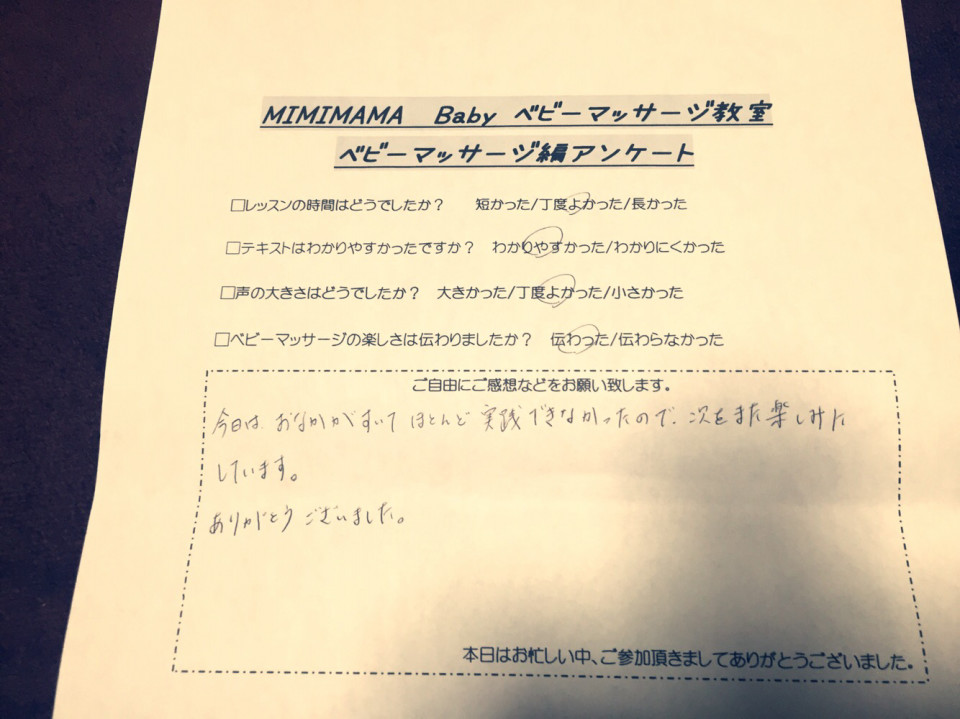 MIMIMAMA Baby ベビーマッサージ教室
ベビーマッサージ編アンケート
□レッスンの時間はどうでしたか？ 短かった/丁度よかった/長かった
□テキストはわかりやすかったですか？ わかりやすかった/わかりにくかった
□声の大きさはどうでしたか？ 大きかった/丁度よかった/小さかった
□ベビーマッサージの楽しさは伝わりましたか？ 伝わった/伝わらなかった
ご自由にご感想などをお願い致します。
今日は、おなかがすいてほとんど実践できなかったので、次をまた楽しみに
しています。
ありがとうございました。
本日はお忙しい中、ご参加頂きましてありがとうございました。